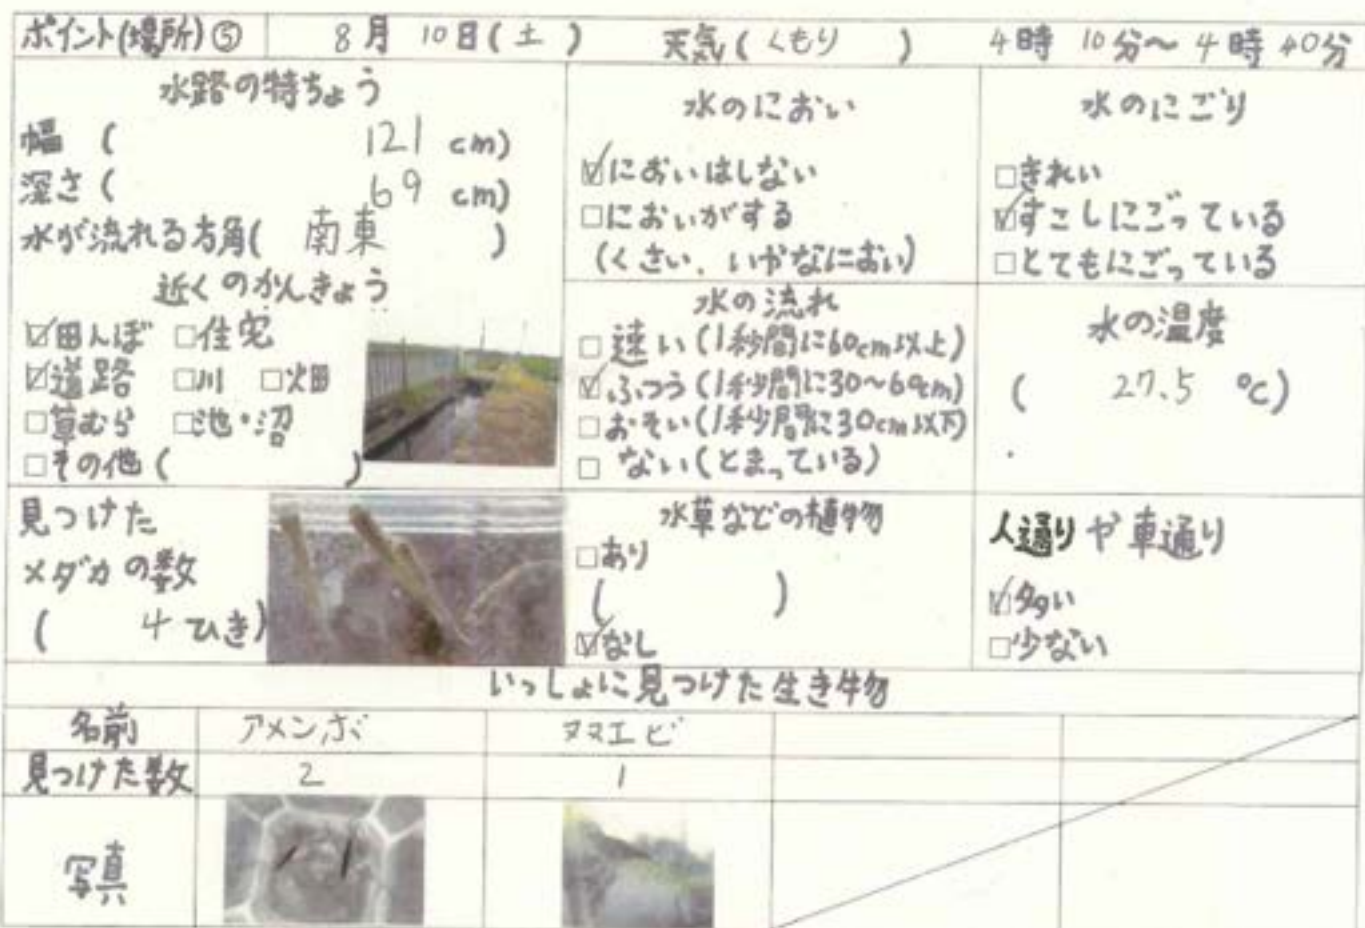 ポイント(場所)⑤ 8月 10日(土) 天気(くもり) 4時 10分～4時40分
水路の特ちょう
幅( 121 cm)
深さ( 69 cm)
水が流れる方角( 南東 )
近くのかんきょう
☑田んぼ □住宅
☑道路 □川 □畑
□草むら □池・沼
□その他( )
水のにおい
☑においはしない
□においがする
(くさい、いやなにおい)
水のにごり
□きれい
☑すこしにごっている
□とてもにごっている
水の流れ
□速い(1秒間に60cm以上)
☑ふつう(1秒間に30～60cm)
□おそい(1秒間に30cm以下)
□ない(とまっている)
水の温度
( 27.5 ℃)
見つけた
メダカの数
( 4ひき)
水草などの植物
□あり
( )
☑なし
人通りや車通り
☑多い
□少ない
いっしょに見つけた生き物
名前 アメンボ ヌマエビ
見つけた数 2 1
写真